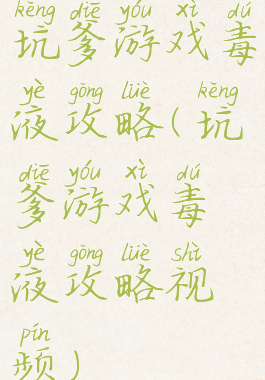 kēng diē yóu xì dú
坑爹游戏毒
yè gōng lüè kēng
液攻略(坑
diē yóu xì dú
爹游戏毒
yè gōng lüè shì
液攻略视
pín
频)